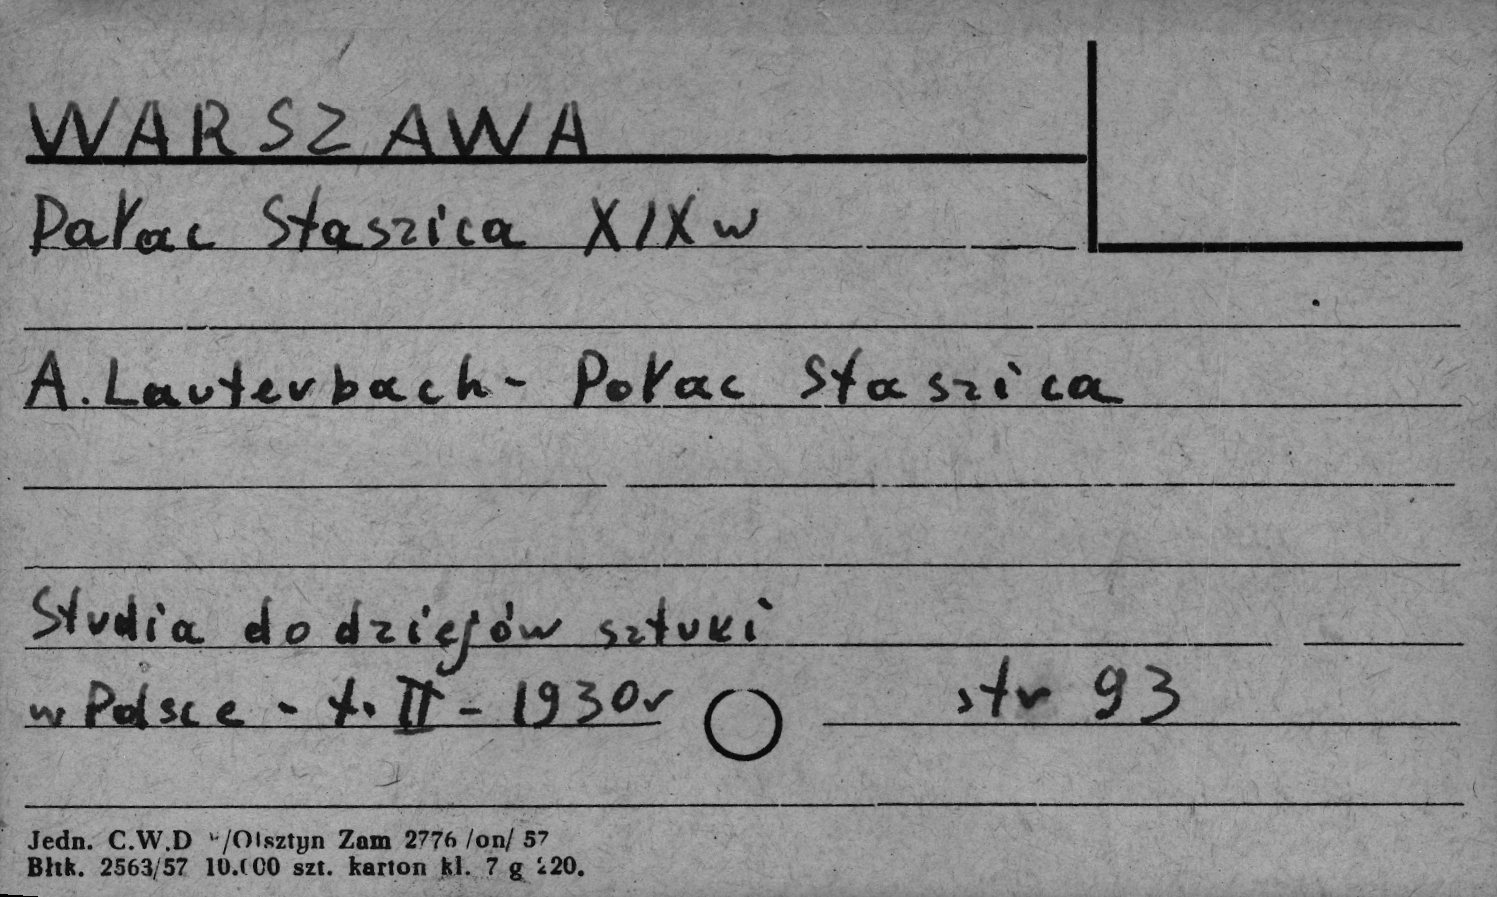 WARSZAWA
Pałac Staszica XIX w
A. Lauterbach - Pałac Staszica
Studia do dziejów sztuki
w Polsce - t. II - 1930 r str 93
Jedn. C.W.D /Olsztyn Zam 2776 /on/ 57
Błtk. 2563/57 10.000 szt. karton kl. 7 g 220.